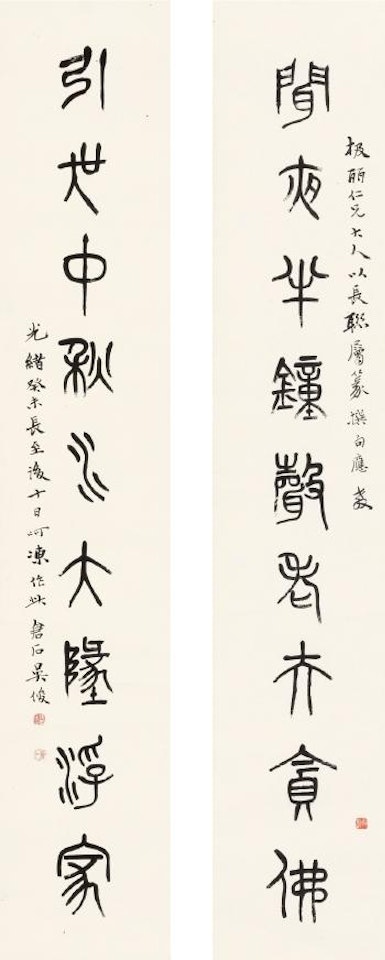 丽仁兄大人以長聯屬篆撰句應教
聞夜半鐘聲老亦貪佛
引中秋水大浮家
光緒癸未長至後十日呵凍作此 倉石吳俊